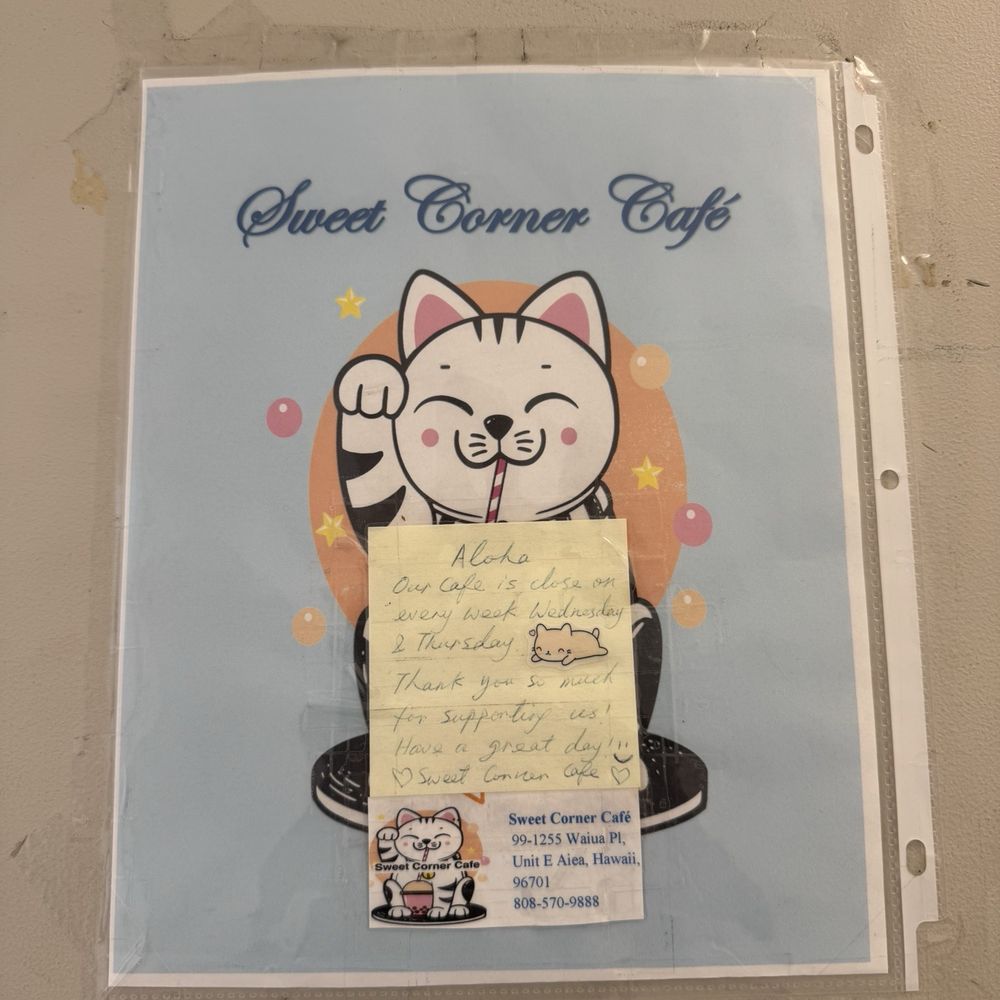 Sweet Corner Café
Aloha
Our cafe is close on
every week Wednesday
& Thursday.
Thank you so much
for supporting us!
Have a great day!
♡ Sweet Corner Cafe ♡
Sweet Corner Cafe
Sweet Corner Café
99-1255 Waiua Pl,
Unit E Aiea, Hawaii,
96701
808-570-9888